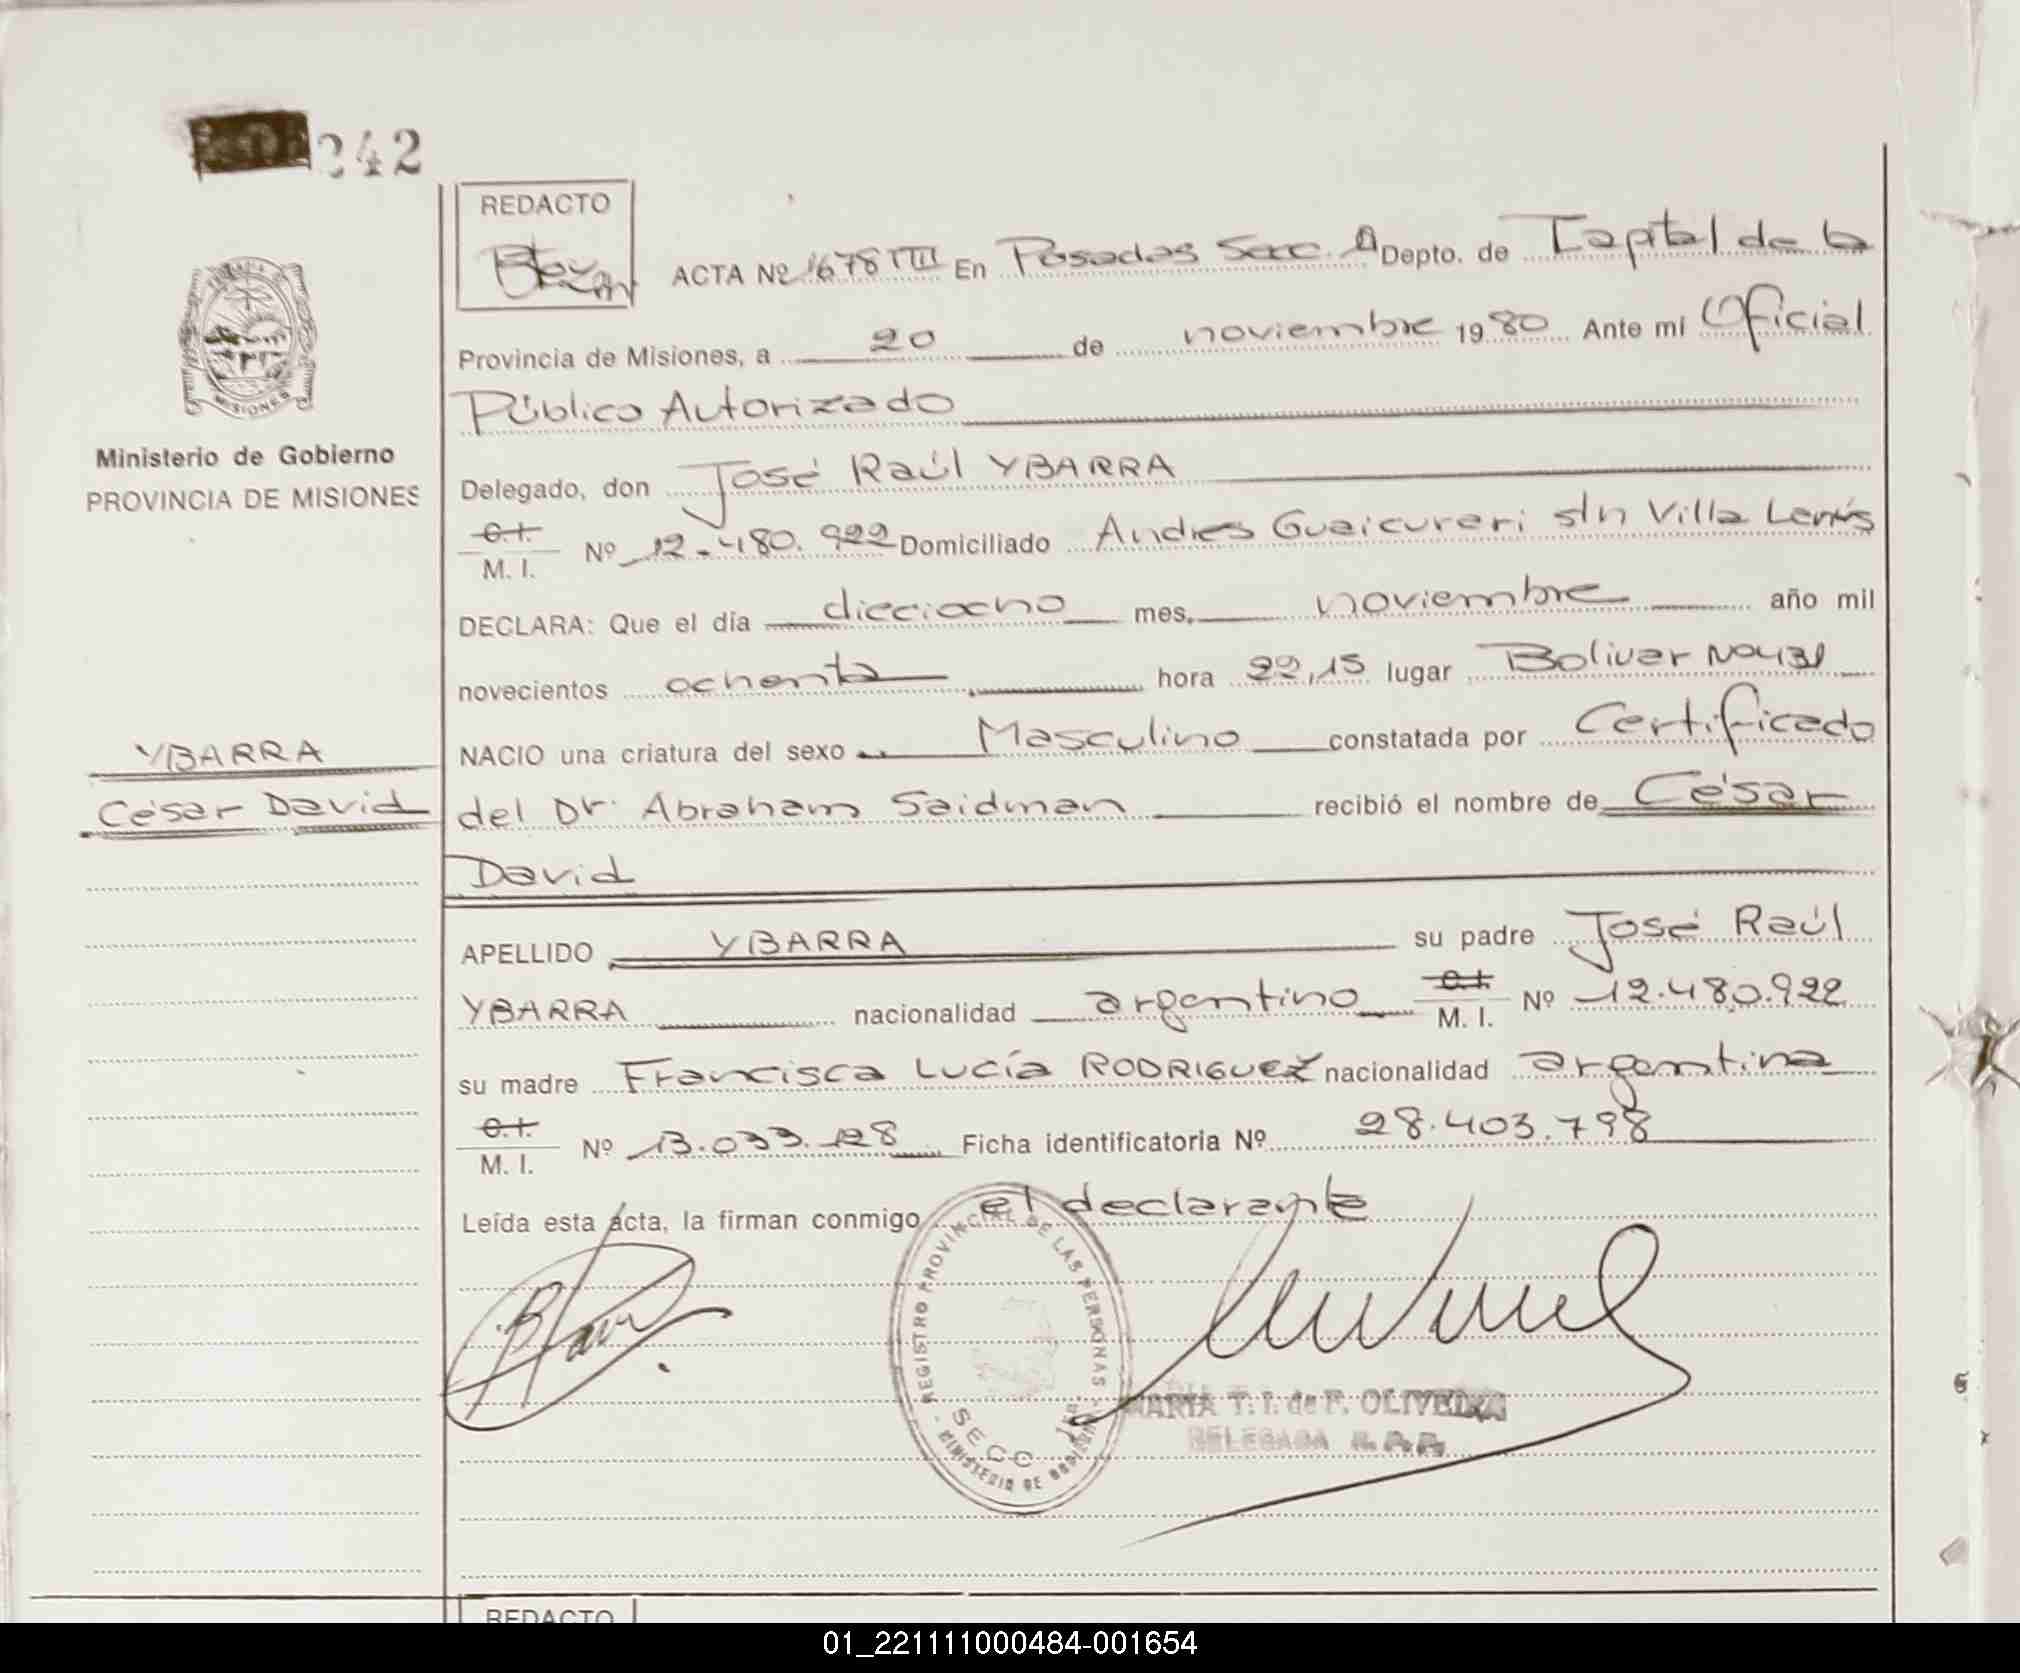 242
REDACTO
ACTA Nº 1678 TIII En Posadas Secc. 1ª Depto. de Capital de la
MISIONES
Provincia de Misiones, a 20 de noviembre 1980 Ante mí Oficial
Público Autorizado
Ministerio de Gobierno
PROVINCIA DE MISIONES
Delegado, don José Raúl YBARRA
C.I.
M. I. Nº 12.480.922 Domiciliado Andres Guaicurari s/n Villa Lanús
DECLARA: Que el día dieciocho mes, noviembre año mil
novecientos ochenta hora 22,15 lugar Bolivar
NACIO una criatura del sexo Masculino constatada por Certificado
YBARRA
César David
del Dr. Abraham Saidman recibió el nombre de César
David
APELLIDO YBARRA su padre José Raúl
YBARRA nacionalidad argentino C.I. M. I. Nº 12.480.922
su madre Francisca Lucía RODRIGUEZ nacionalidad argentina
C.I.
M. I. Nº 13.033.128 Ficha identificatoria Nº 28.403.798
Leída esta acta, la firman conmigo el declarante
REGISTRO PROVINCIAL DE LAS PERSONAS
SECC. 1ra.
MINISTERIO DE GOBIERNO
MARIA T. I. de F. OLIVEIRA
DELEGADA R.P.P.
REDACTO
01_221111000484-001654